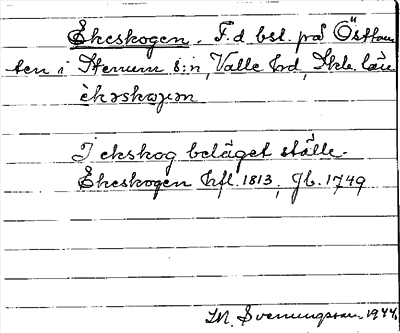 Ekeskogen. F.d bst. på Östtom
ten i Stenum s:n, Valle hd, Skbr. län
èkəskωɡən
I ekskog beläget ställe.
Ekeskogen hfl. 1813, Jb. 1749
M. Svenungsson 1944.